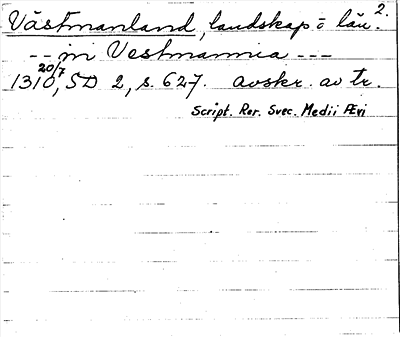 Västmanland, landskap o län. 2.
-- in Vestmannia ---
1310 20/7, SD 2, s. 627. avskr. av tr.
Script. Rer. Svec. Medii Ævi